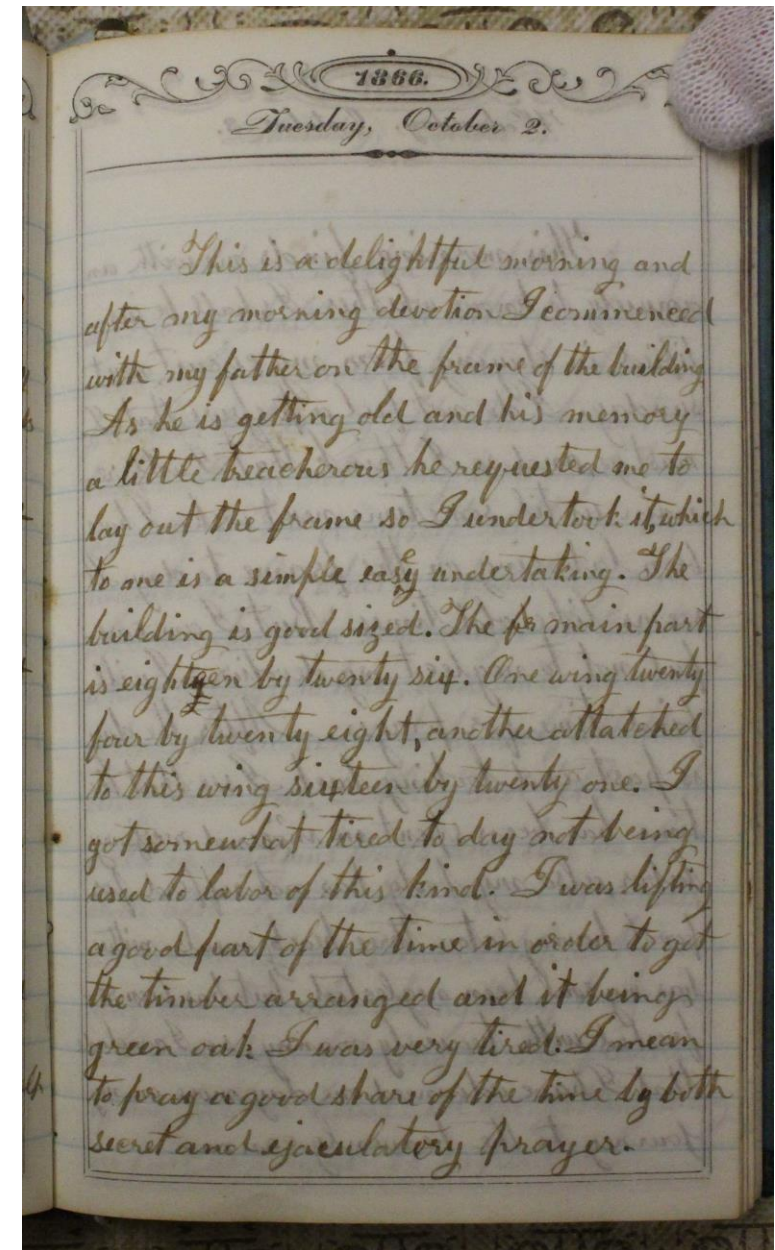 1866.
Tuesday, October 2.
This is a delightful morning and
after my morning devotion I commenced
with my father on the frame of the building
As he is getting old and his memory
a little treacherous he requested me to
lay out the frame so I undertook it, which
to me is a simple easy undertaking. The
building is good sized. The fr main part
is eighteen by twenty six. One wing twenty
four by twenty eight, another attatched
to this wing sixteen by twenty one. I
got somewhat tired to day not being
used to labor of this kind. I was lifting
a good part of the time in order to get
the timber arranged and it being
green oak I was very tired. I mean
to pray a good share of the time by both
secret and ejaculatory prayer.
4